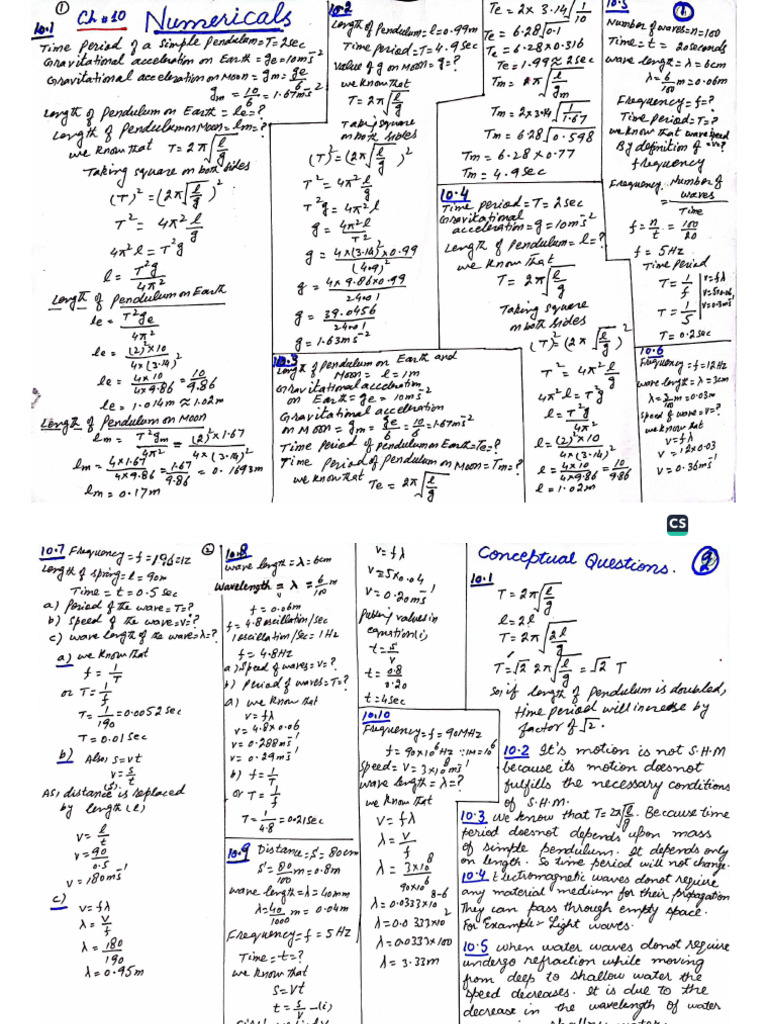 ①
Ch # 10
Numericals
10.1
Time Period of a Simple Pendulum = T = 2sec
Gravitational acceleration on Earth = ge = 10ms⁻²
Gravitational acceleration on Moon = gm = ge/6
gm = 10/6 = 1.67ms⁻²
Length of Pendulum on Earth = le = ?
Length of Pendulum on Moon = lm = ?
we know that T = 2π√(l/g)
Taking square on both sides
(T)² = (2π√(l/g))²
T² = 4π² l/g
4π²l = T²g
l = T²g/4π²
Length of Pendulum on Earth
le = T²ge/4π²
le = (2)² × 10/4 × (3.14)²
le = 4 × 10/4 × 9.86 = 10/9.86
le = 1.014m ≈ 1.02m
Length of Pendulum on Moon
lm = T²gm/4π² = (2)² × 1.67/4 × (3.14)²
lm = 4 × 1.67/4 × 9.86 = 1.67/9.86 = 0.1693m
lm = 0.17m
10.2
Length of Pendulum = l = 0.99m
Time Period = T = 4.9sec
Value of g on Moon = g = ?
we know that
T = 2π√(l/g)
Taking square
on both sides
(T)² = (2π√(l/g))²
T² = 4π² l/g
T²g = 4π²l
g = 4π²l/T²
g = 4 × (3.14)² × 0.99/(4.9)²
g = 4 × 9.86 × 0.99/24.01
g = 39.0456/24.01
g = 1.63ms⁻²
10.3
Length of Pendulum on Earth and
Moon = l = 1m
Gravitational acceleration
on Earth = ge = 10ms⁻²
Gravitational acceleration
on Moon = gm = ge/6 = 10/6 = 1.67ms⁻²
Time Period of Pendulum on Earth = Te = ?
Time Period of Pendulum on Moon = Tm = ?
we know that Te = 2π√(l/g)
Te = 2 × 3.14√(1/10)
Te = 6.28√0.1
Te = 6.28 × 0.316
Te = 1.99 ≈ 2sec
Tm = 2π√(l/gm)
Tm = 2 × 3.14√(1/1.67)
Tm = 6.28√0.598
Tm = 6.28 × 0.77
Tm = 4.9sec
10.4
Time period = T = 2sec
Gravitational
acceleration = g = 10ms⁻²
Length of Pendulum = l = ?
we know that
T = 2π√(l/g)
Taking square
on both sides
(T)² = (2π√(l/g))²
T² = 4π² l/g
4π²l = T²g
l = T²g/4π²
l = (2)² × 10/4 × (3.14)²
l = 4 × 10/4 × 9.86 = 10/9.86
l = 1.02m
10.5
①
Number of waves = n = 100
Time = t = 20seconds
wave length = λ = 6cm
λ = 6/100 m = 0.06m
Frequency = f = ?
Time Period = T = ?
we know that wave speed = v = ?
By definition of
frequency
Frequency = Number of waves/Time
f = n/t = 100/20
f = 5Hz
Time Period
T = 1/f
T = 1/5
T = 0.2sec
v = fλ
v = 5×0.06
v = 0.3ms⁻¹
10.6
Frequency = f = 12Hz
wave length = λ = 3cm
λ = 3/100 m = 0.03m
speed of wave = v = ?
we know that
v = fλ
v = 12 × 0.03
v = 0.36ms⁻¹
CS
②
10.7 Frequency = f = 190Hz
Length of spring = l = 90m
Time = t = 0.5sec
a) Period of the wave = T = ?
b) Speed of the wave = v = ?
c) wave length of the wave = λ = ?
a) we know that
f = 1/T
or T = 1/f
T = 1/190 = 0.0052sec
T = 0.01sec
b) Also S = vt
v = S/t
As, distance (S) is replaced
by length (l)
v = l/t
v = 90/0.5
v = 180ms⁻¹
c)
v = fλ
λ = v/f
λ = 180/190
λ = 0.95m
10.8
wave length = λ = 6cm
Wavelength = λ = 6/100 m
λ = 0.06m
f = 4.8 oscillation/sec
1 oscillation/sec = 1Hz
f = 4.8Hz
a) Speed of waves = v = ?
b) Period of waves = T = ?
a) we know that
v = fλ
v = 4.8 × 0.06
v = 0.288ms⁻¹
v = 0.29ms⁻¹
b) f = 1/T
or T = 1/f
T = 1/4.8 = 0.21sec
10.9 Distance = S = 80cm
S = 80/100 m = 0.8m
wave length = λ = 40mm
λ = 40/1000 m = 0.04m
Frequency = f = 5Hz
Time = t = ?
we know that
S = vt
t = S/v —(i)
v = fλ
v = 5 × 0.04
v = 0.20ms⁻¹
Putting values in
equation (i)
t = S/v
t = 0.8/0.20
t = 4sec
10.10
Frequency = f = 90MHz
f = 90 × 10⁶ Hz ∵ 1M = 10⁶
Speed = v = 3 × 10⁸ ms⁻¹
wave length = λ = ?
we know that
v = fλ
λ = v/f
λ = 3 × 10⁸/90 × 10⁶
λ = 0.0333 × 10⁸⁻⁶
λ = 0.0333 × 10²
λ = 0.0333 × 100
λ = 3.33m
Conceptual Questions.
10.1
T = 2π√(l/g)
l = 2l
T = 2π√(2l/g)
T' = √2 2π√(l/g) = √2 T
So, if length of pendulum is doubled,
time period will increase by
factor of √2.
10.2 It's motion is not S.H.M
because its motion doesnot
fulfills the necessary conditions
of S.H.M.
10.3 we know that T = 2π√(l/g). Because time
period doesnot depends upon mass
of simple pendulum. It depends only
on length. So time period will not change.
10.4 Electromagnetic waves donot require
any material medium for their propagation
They can pass through empty space.
For Example:- Light waves.
10.5 when water waves donot require
undergo refraction while moving
from deep to shallow water the
speed decreases. It is due to the
decrease in the wavelength of water